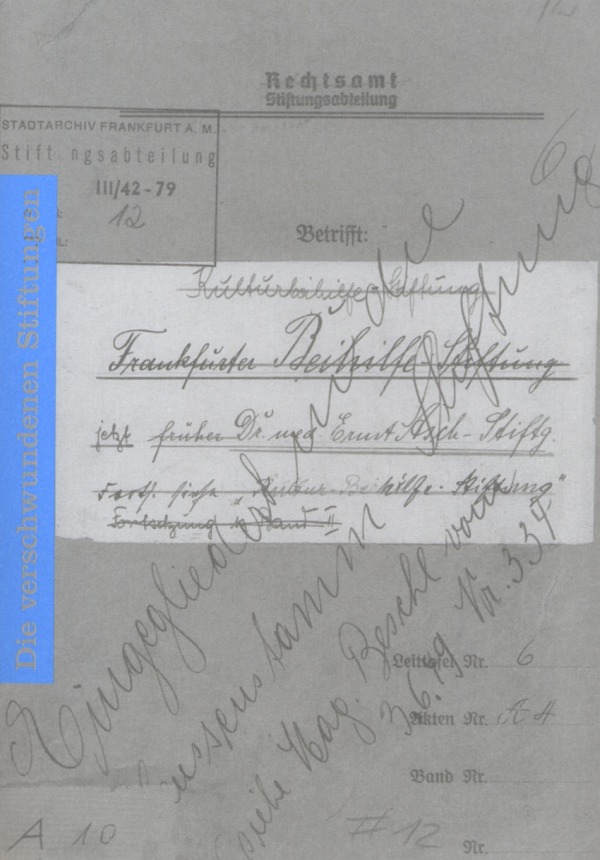 Rechtsamt
Stiftungsabteilung
STADTARCHIV FRANKFURT A. M.
Stift ngsabteilung
III/42-79
12
Betrifft:
Kulturbeihilfe-Stiftung
Frankfurter Beihilfe-Stiftung
jetzt früher Dr med Ernst Asch-Stiftg.
Forts. siehe "Kultur-Beihilfe-Stiftung"
Fortsetzung in Band II
Eingegliedert in die
Stiftung
siehe Mag. Beschl. vom
3.6.49 Nr. 334
Leittafel Nr. 6
Akten Nr. A4
Band Nr.
Nr.
A 10
# 12
Die verschwundenen Stiftungen